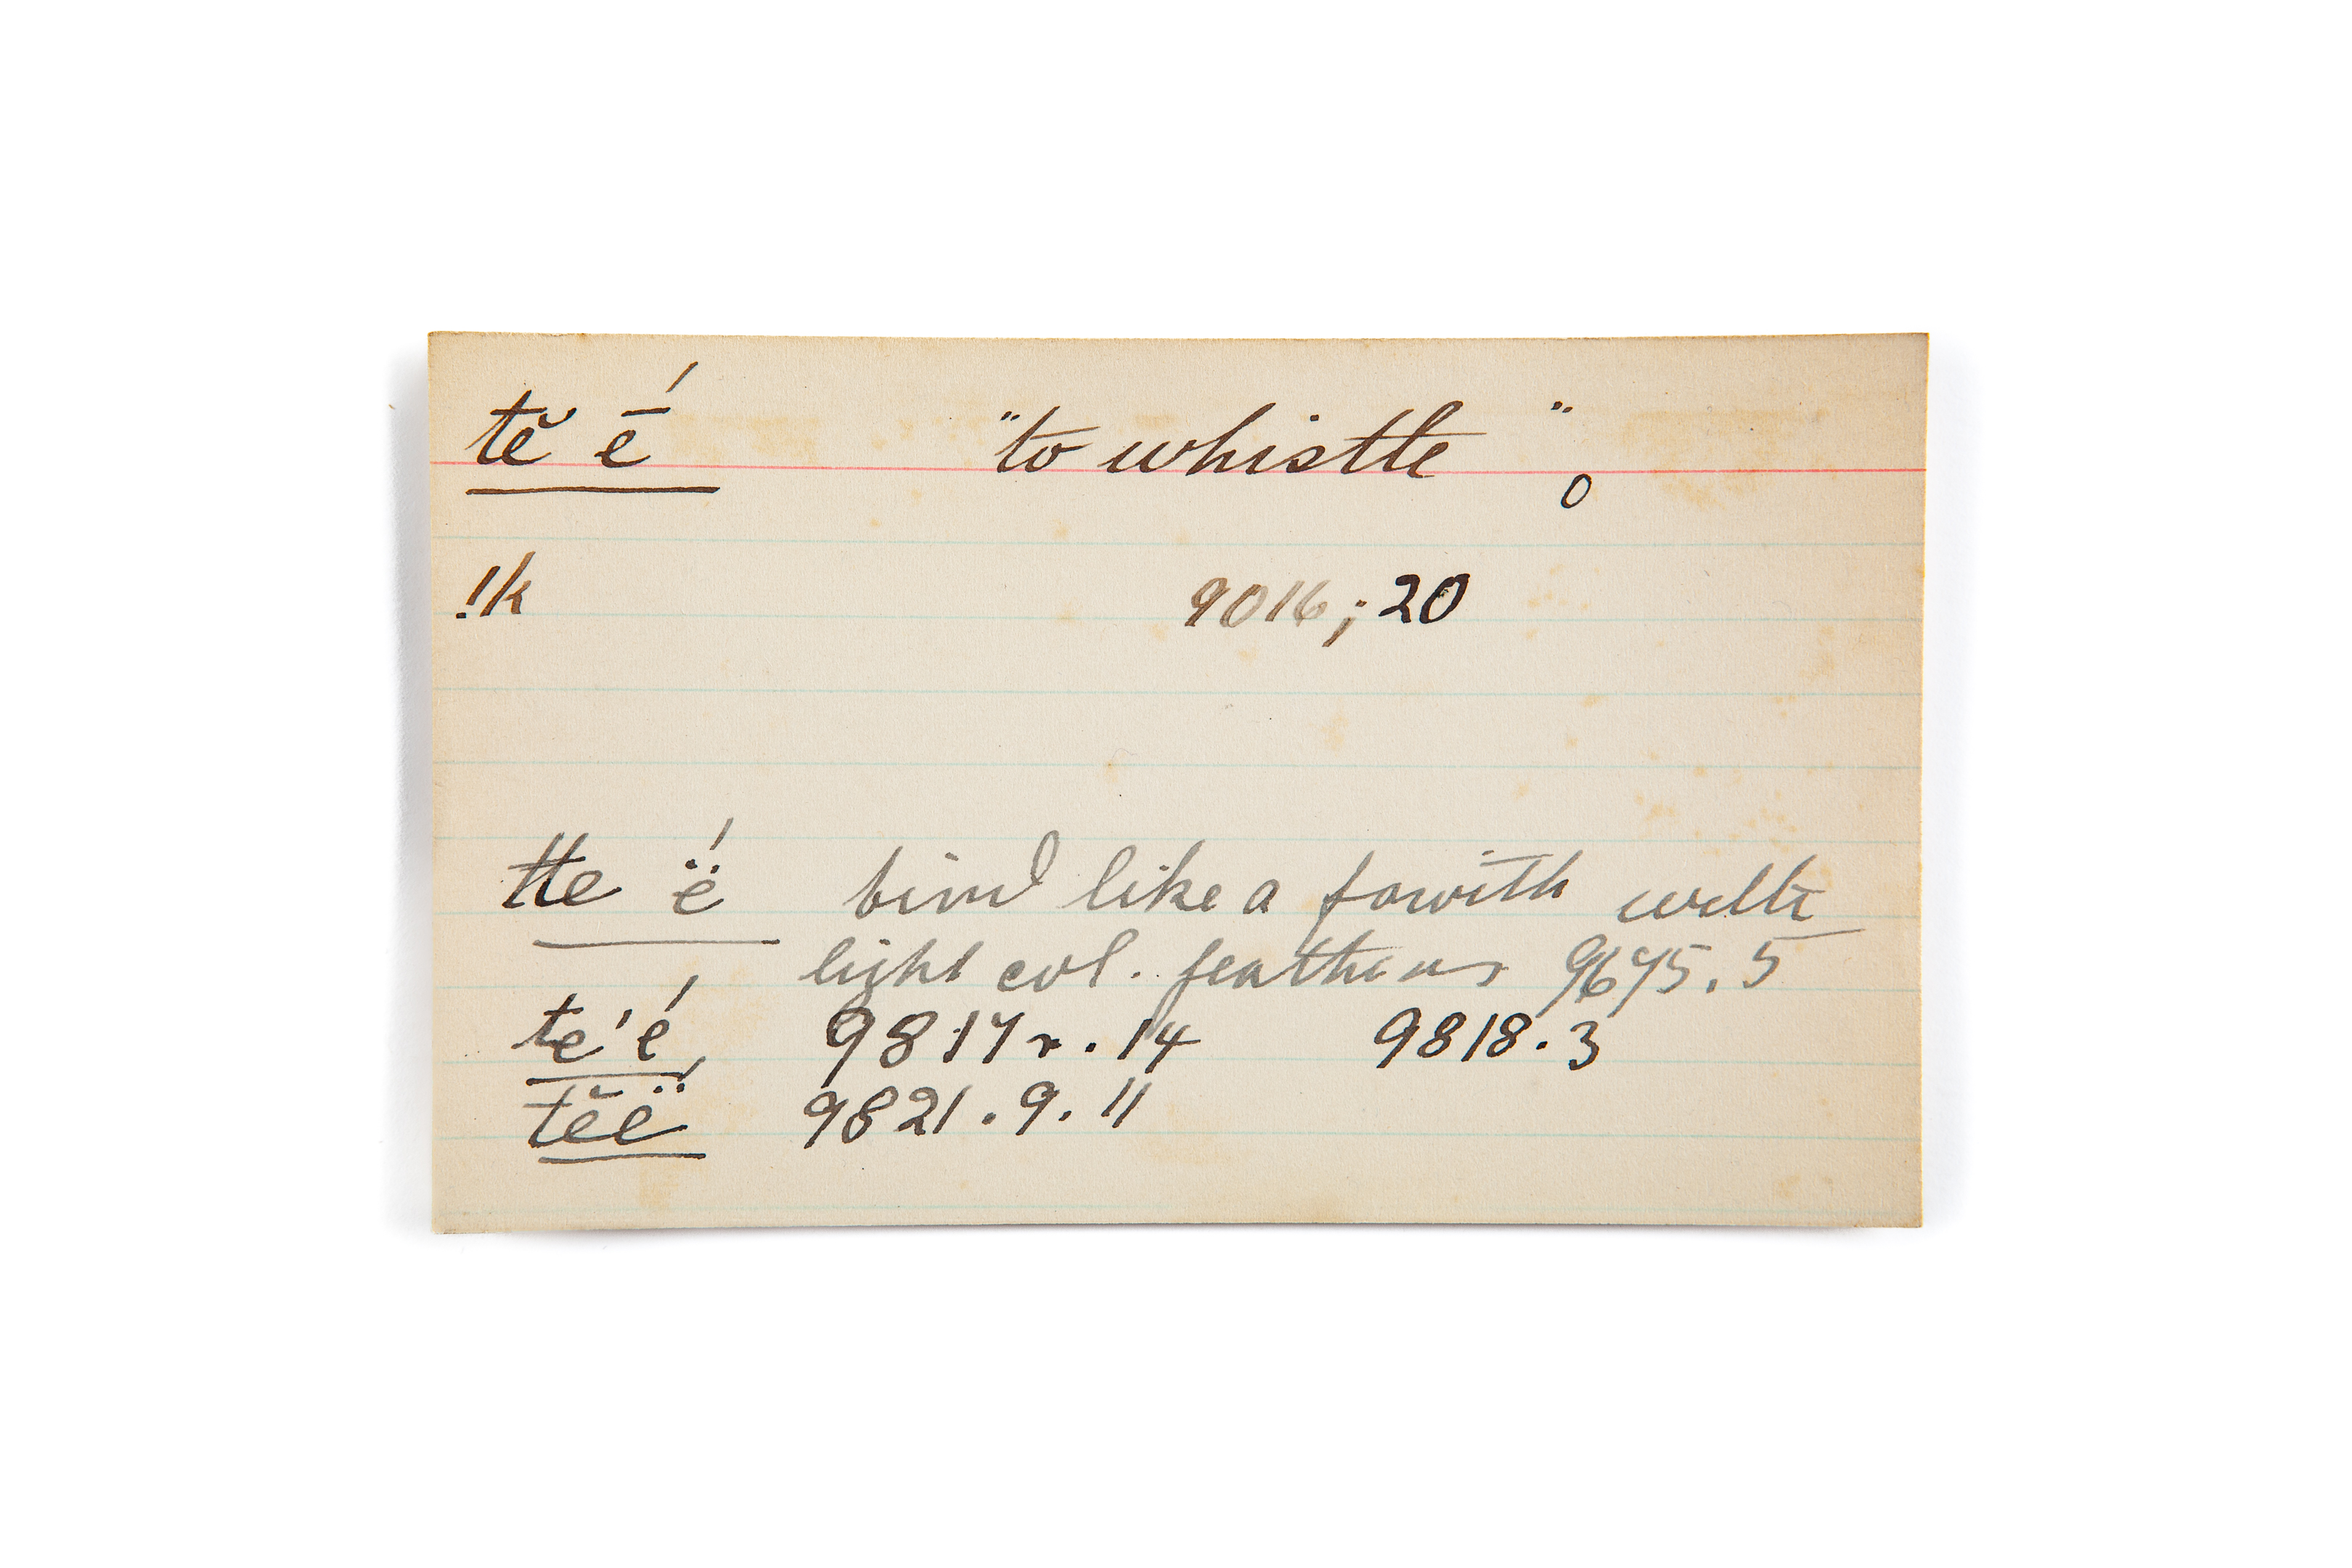 tĕ ḗ "to whistle" o
!k 9016; 20
tte ë́ bird like a fowith with
light col. feathers 9675.5
te'é 9817r.14 9818.3
tĕë́ 9821.9.11